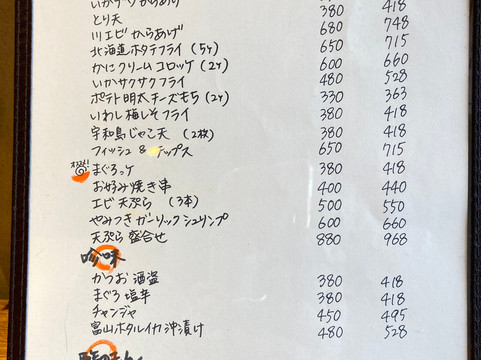 とり天 380 418
川エビからあげ 680 748
北海道ホタテフライ (5ヶ) 650 715
かにクリームコロッケ (2ヶ) 600 660
いかサクサクフライ 480 528
ポテト明太チーズもち (2ヶ) 330 363
いわし梅しそフライ 380 418
宇和島じゃこ天 (2枚) 380 418
フィッシュ & チップス 650 715
まぐろッケ 380 418
お好み焼き串 400 440
エビ天ぷら (3本) 500 550
やみつきガーリックシュリンプ 600 660
天ぷら盛合せ 880 968
珍味
かつお酒盗 380 418
まぐろ塩辛 380 418
チャンジャ 450 495
富山ホタルイカ沖漬け 480 528